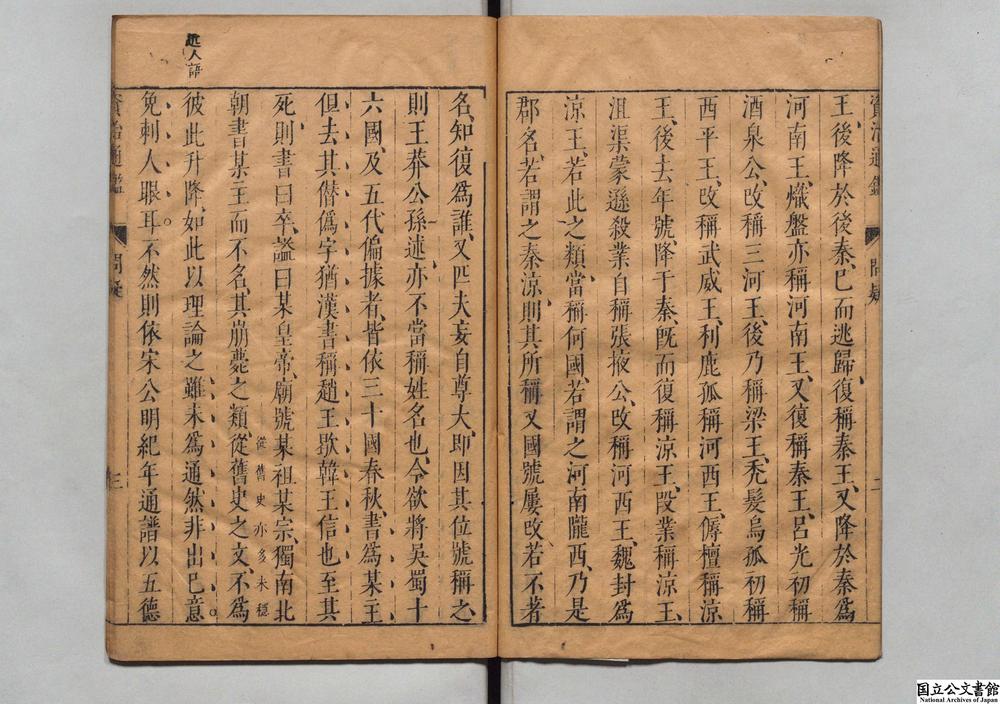 王、後降於後秦、已而逃歸、復稱秦王、又降於秦爲
河南王、熾盤亦稱河南王、又復稱秦王、呂光初稱
酒泉公、改稱三河王、後乃稱梁王、禿髮烏孤初稱
西平王、改稱武威王、利鹿孤稱河西王、傉檀稱涼
王、後去年號、降于秦、旣而復稱涼王、段業稱涼王、
沮渠蒙遜殺業自稱張掖公、改稱河西王、魏封爲
涼王、若此之類、當稱何國、若謂之河南隴西、乃是
郡名、若謂之秦涼、則其所稱又國號屢改、若不著
資治通鑑 問疑 二
名、知復爲誰、又匹夫妄自尊大、卽因其位號稱之、
則王莽公孫述亦不當稱姓名也、今欲將吳蜀十
六國、及五代偏據者、皆依三十國春秋、書爲某主、
但去其僭僞字、猶漢書稱趙王歇韓王信也、至其
死、則書曰卒、諡曰某皇帝、廟號某祖某宗、獨南北
朝書某主而不名、其崩薨之類、從舊史之文、不爲
從舊史亦多未穩
彼此升降、如此以理論之、雖未爲通、然非出己意、
免刺人眼耳、不然則依宋公明紀年通譜、以五德
資治通鑑 問疑 三
近人語
国立公文書館
National Archives of Japan